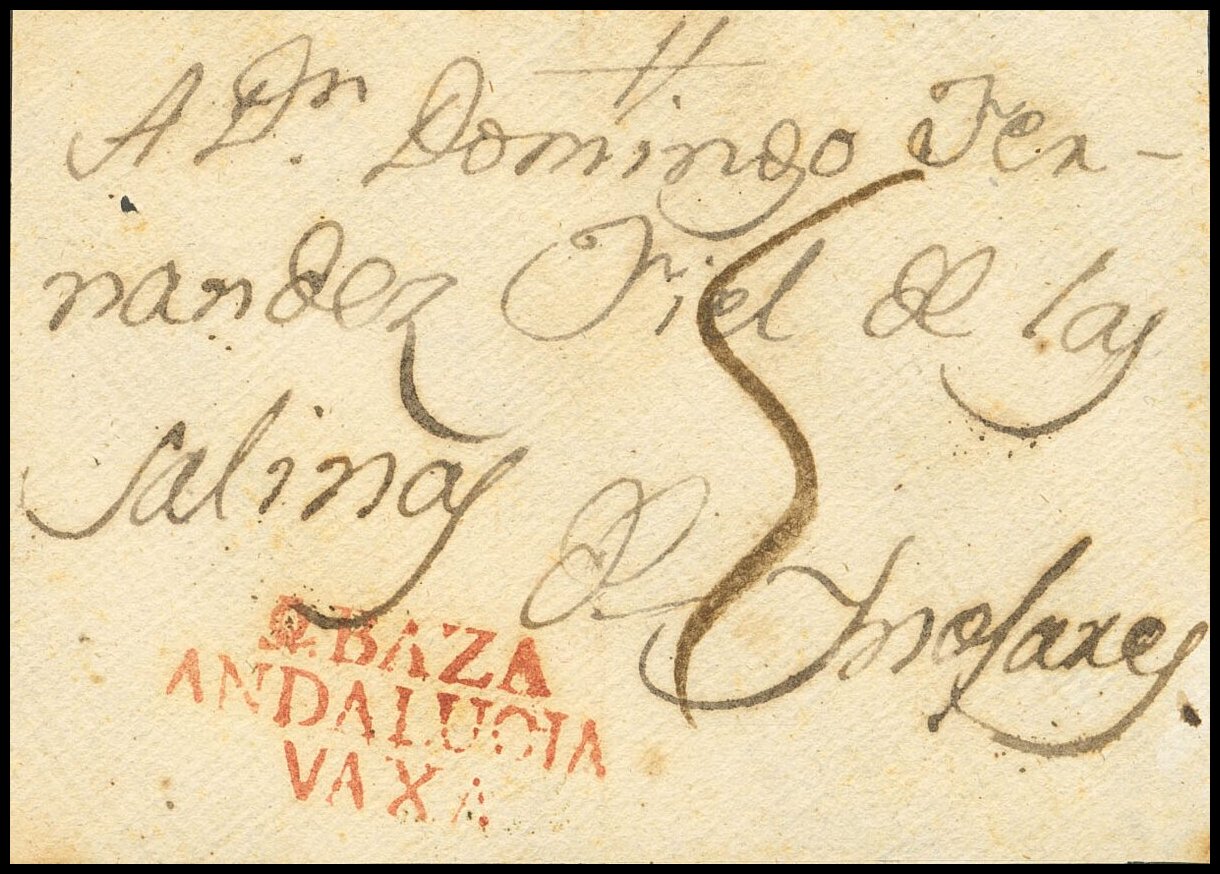 A Dn. Domingo Fer-
nandez Fiel de las
Salinas de
Ymosares
5
D. BAZA
ANDALUCIA
VAXA